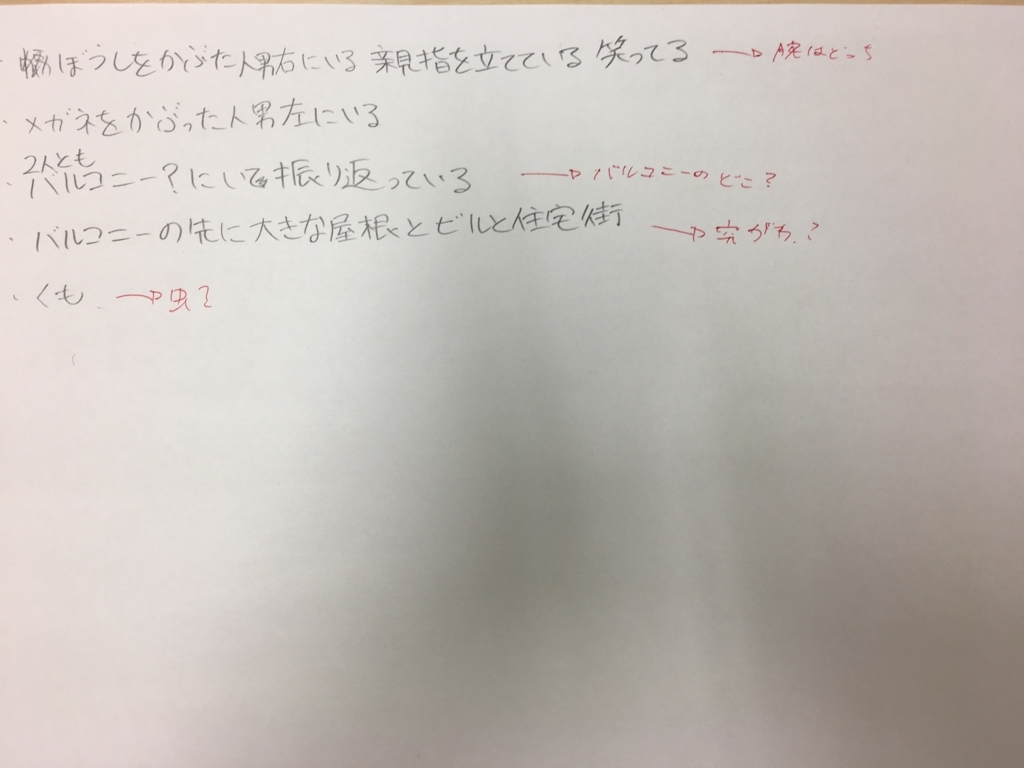 ぼうしをかぶた人男右にいる 親指を立てている 笑ってる → 腕はどっち
・メガネをかぶった人男左にいる
2人とも
・バルコニー?にいる振り返っている → バルコニーのどこ?
・バルコニーの先に大きな屋根とビルと住宅街 →
・くも → 虫?